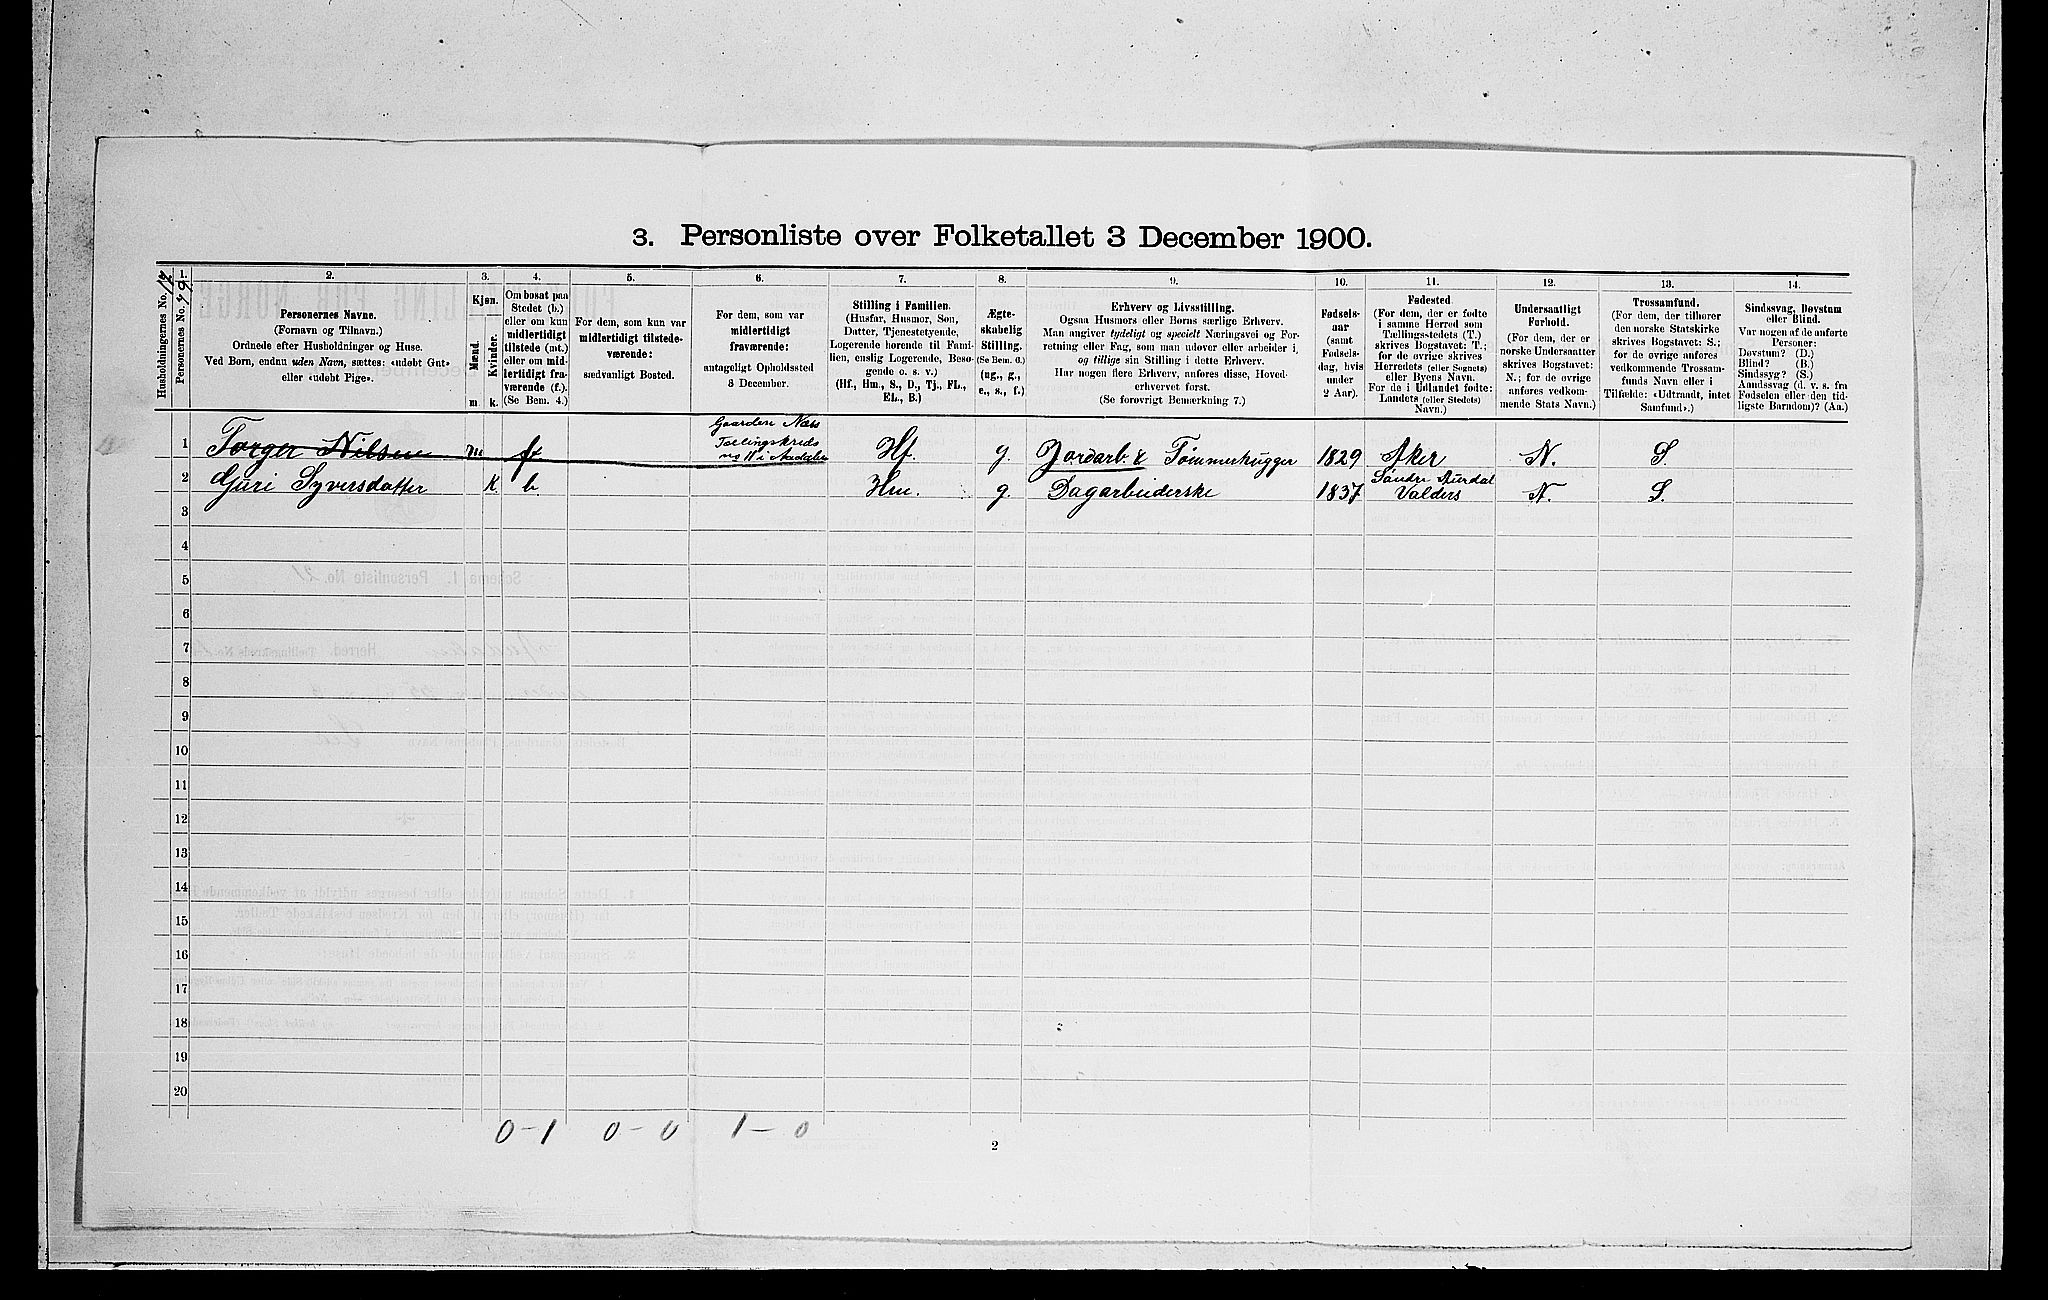 3. Personliste over Folketallet 3 December 1900.
Husholdningernes No.
1.
Personernes No.
2.
Personernes Navne.
(Fornavn og Tilnavn.)
Ordnede efter Husholdninger og Huse.
Ved Børn, endnu uden Navn, sættes: «udøbt Gut»
eller «udøbt Pige».
3.
Kjøn.
Mænd.
Kvinder.
m
k.
4.
Om bosat paa
Stedet (b.)
eller om kun
midlertidigt
tilstede (mt.)
eller om mid-
lertidigt fra-
værende (f.).
(Se Bem. 4.)
5.
For dem, som kun var
midlertidigt tilstede-
værende:
sædvanligt Bosted.
6.
For dem, som var
midlertidigt
fraværende:
antageligt Opholdssted
3 December.
7.
Stilling i Familien.
(Husfar, Husmor, Søn,
Datter, Tjenestetyende,
Logerende hørende til Fami-
lien, enslig Logerende, Besø-
gende o. s. v.)
(Hf., Hm., S., D., Tj., FL.,
EL., B.)
8.
Ægte-
skabelig
Stilling.
(Se Bem. 6.)
(ug., g.,
e., s., f.)
9.
Erhverv og Livsstilling.
Ogsaa Husmors eller Børns særlige Erhverv.
Man angiver tydeligt og specielt Næringsvei og For-
retning eller Fag, som man udøver eller arbeider i,
og tillige sin Stilling i dette Erhverv.
Har nogen flere Erhverv, anføres disse, Hoved-
erhvervet først.
(Se forøvrigt Bemærkning 7.)
10.
Fødsels-
aar
(samt
Fødsels-
dag, hvis
under
2 Aar).
11.
Fødested.
(For dem, der er fødte
i samme Herred som
Tællingsstedets (T.)
skrives Bogstavet: T.;
for de øvrige skrives
Herredets (eller Sognets)
eller Byens Navn.
For de i Udlandet fødte:
Landets (eller Stedets)
Navn.)
12.
Undersaatligt
Forhold.
(For dem, der er
norske Undersaatter
skrives Bogstavet:
N.; for de øvrige
anføres vedkom-
mende Stats Navn.)
13.
Trossamfund.
(For dem, der tilhører
den norske Statskirke
skrives Bogstavet: S.;
for de øvrige anføres
vedkommende Trossam-
funds Navn eller i
Tilfælde: «Udtraadt, intet
Samfund».)
14.
Sindssvag, Døvstum
eller Blind.
Var nogen af de anførte
Personer:
Døvstum? (D.)
Blind? (B.)
Sindssyg? (S.)
Aandssvag (d. v. s. fra
Fødselen eller den tid-
ligste Barndom)? (Aa.)
Gaarden Næs
Tællingskreds
1 Torger Nilsen m f Hf. g. Jordarb. & Tømmerhugger 1829 Aker N. S.
Søndre Aurdal
2 Guri Syversdatter k b. Hm. g. Dagarbeiderske 1837 Valders N. S.
3
4
5
6
7
8
9
10
11
12
13
14
15
16
17
18
19
20
0-1 0-0 1-0
2